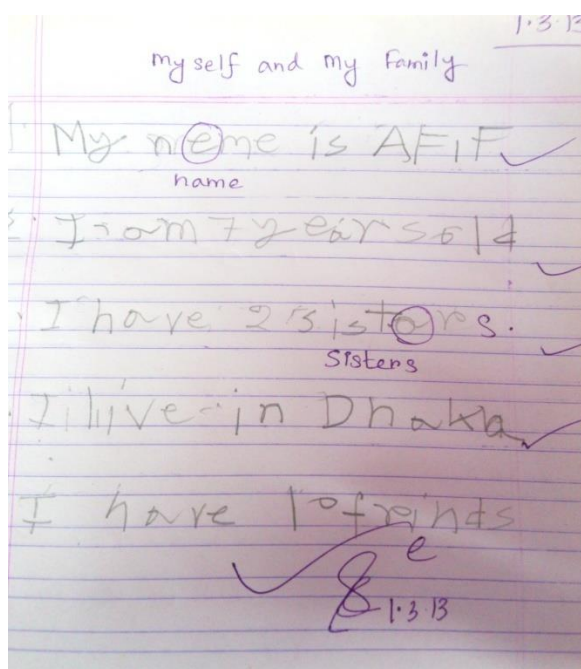 1.3.13
My self and my Family
My neme is AFIF
name
I am 7 years old
I have 2 sistars.
Sisters
I live in Dhaka
I have 10 freinds
e
1.3.13